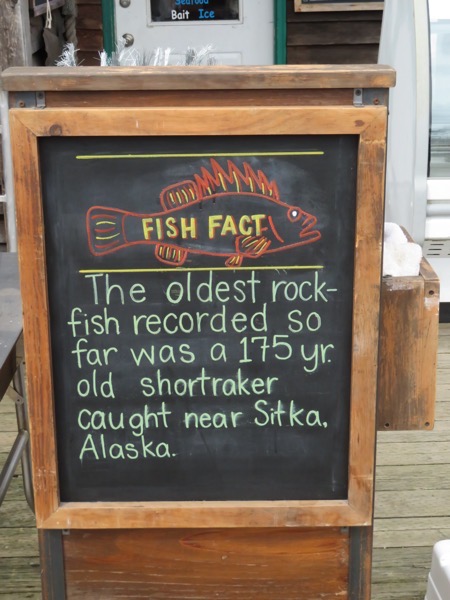 Seafood
Bait Ice
FISH FACT
The oldest rock-
fish recorded so
far was a 175 yr.
old shortraker
caught near Sitka,
Alaska.